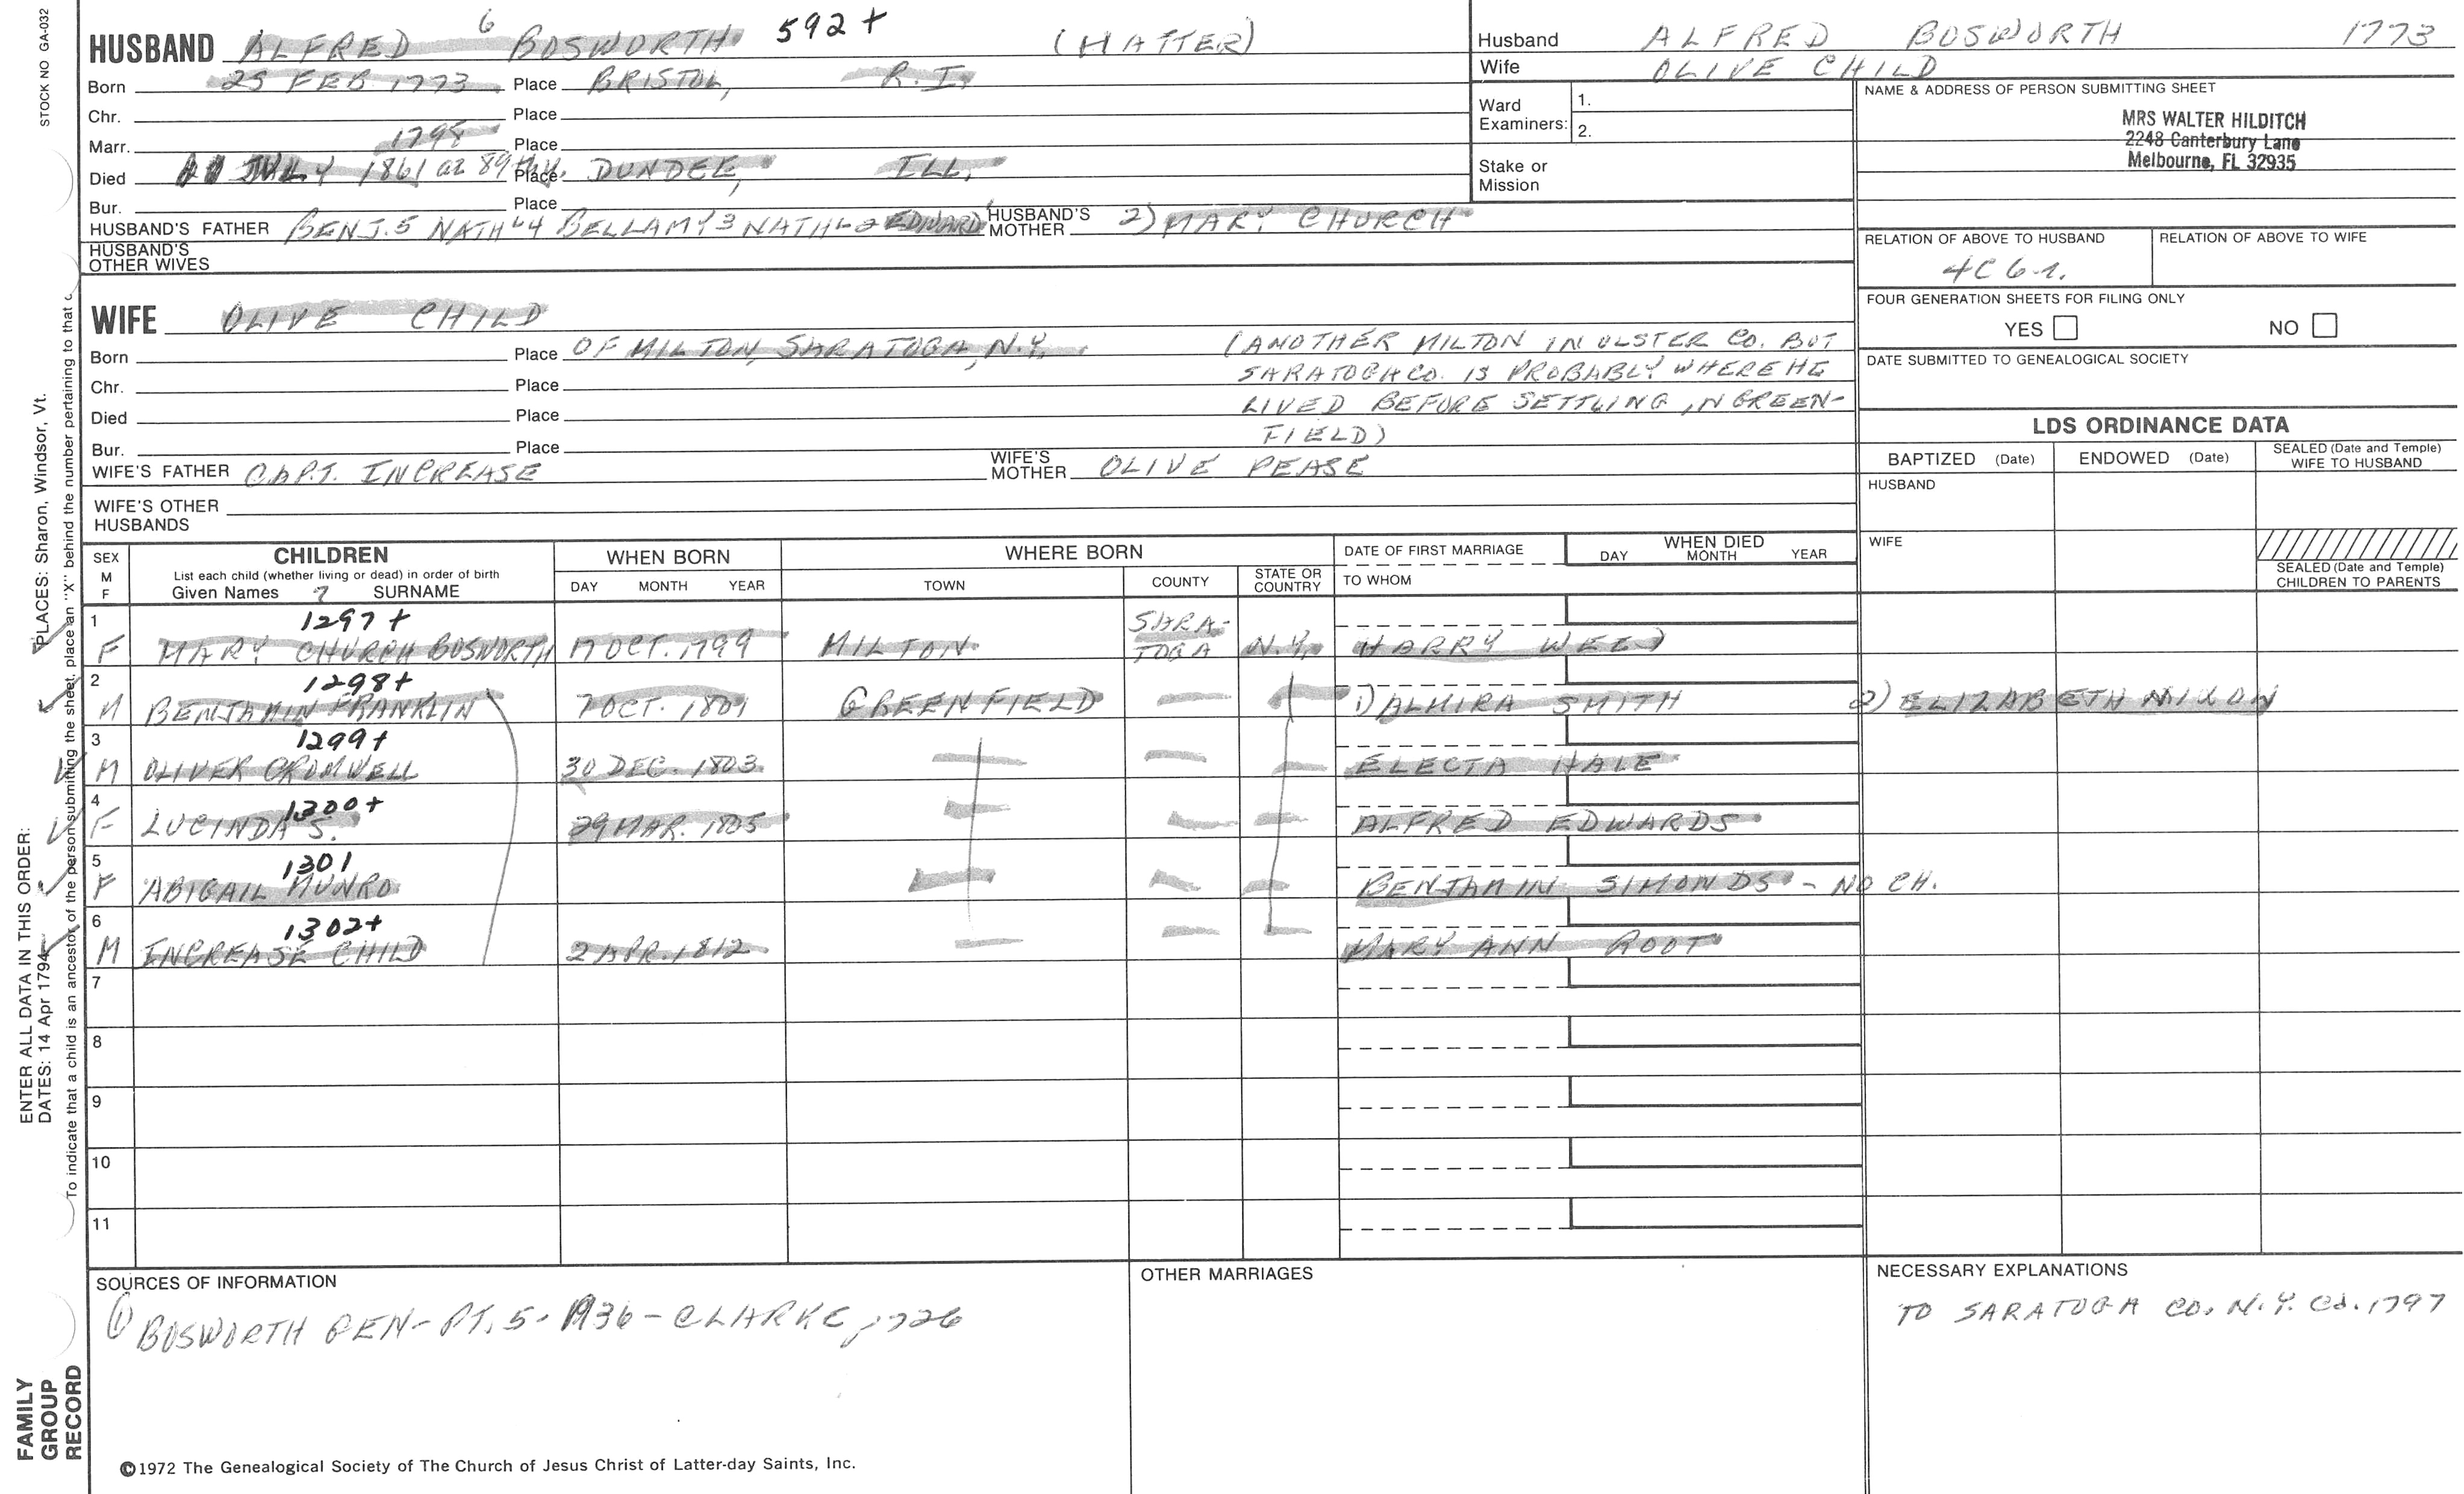 STOCK NO GA-032
HUSBAND ALFRED 6 BOSWORTH 592+ (HATTER)
Born 25 FEB 1773 Place BRISTOL, R.I.
Chr. Place
Marr. 1798 Place
Died JULY 1861 at 89 Place DUNDEE, ILL.
Bur. Place
HUSBAND'S FATHER BENJ.5 NATHL4 BELLAMY3 NATHL2 EDWARD HUSBAND'S MOTHER 2) MARY CHURCH
HUSBAND'S OTHER WIVES
WIFE OLIVE CHILD
Born Place OF MILTON, SARATOGA, N.Y. (ANOTHER MILTON IN ULSTER CO. BUT
Chr. Place SARATOGA CO. IS PROBABLY WHERE HE
Died Place LIVED BEFORE SETTLING IN GREEN-
Bur. Place FIELD)
WIFE'S FATHER CAPT. INCREASE WIFE'S MOTHER OLIVE PEASE
WIFE'S OTHER HUSBANDS
Husband ALFRED BOSWORTH 1773
Wife OLIVE CHILD
Ward Examiners: 1. 2.
Stake or Mission
NAME & ADDRESS OF PERSON SUBMITTING SHEET
MRS WALTER HILDITCH
2248 Canterbury Lane
Melbourne, FL 32935
RELATION OF ABOVE TO HUSBAND RELATION OF ABOVE TO WIFE
4C 6r.
FOUR GENERATION SHEETS FOR FILING ONLY
YES NO
DATE SUBMITTED TO GENEALOGICAL SOCIETY
LDS ORDINANCE DATA
BAPTIZED (Date) ENDOWED (Date) SEALED (Date and Temple) WIFE TO HUSBAND
HUSBAND
WIFE
SEALED (Date and Temple) CHILDREN TO PARENTS
SEX M F CHILDREN WHEN BORN WHERE BORN DATE OF FIRST MARRIAGE WHEN DIED
List each child (whether living or dead) in order of birth
Given Names 7 SURNAME DAY MONTH YEAR TOWN COUNTY STATE OR COUNTRY TO WHOM DAY MONTH YEAR
1 1297+
F MARY CHURCH BOSWORTH 17 OCT. 1799 MILTON SARA-TOGA N.Y. HARRY WEED
2 1298+
M BENJAMIN FRANKLIN 7 OCT. 1801 GREENFIELD — 1) ALMIRA SMITH 2) ELIZABETH NIXON
3 1299+
M OLIVER CROMWELL 30 DEC. 1803 — — — ELECTA HALE
4 1300+
F LUCINDA S. 29 MAR. 1805 — — — ALFRED EDWARDS
5 1301
F ABIGAIL MUNRO — — — BENJAMIN SIMONDS - NO CH.
6 1302+
M INCREASE CHILD 2 APR. 1812 — — — MARY ANN ROOT
7
8
9
10
11
SOURCES OF INFORMATION
① BOSWORTH GEN- PT. 5- 1936 - CLARKE, 726
OTHER MARRIAGES
NECESSARY EXPLANATIONS
TO SARATOGA CO. N.Y. Ca. 1797
©1972 The Genealogical Society of The Church of Jesus Christ of Latter-day Saints, Inc.
FAMILY GROUP RECORD
ENTER ALL DATA IN THIS ORDER:
DATES: 14 Apr 1794
PLACES: Sharon, Windsor, Vt.
To indicate that a child is an ancestor of the person submitting the sheet, place an "X" behind the number pertaining to that